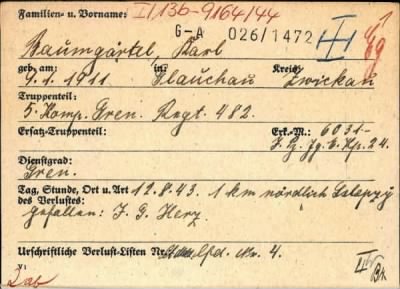 Familien- u. Vorname: II/136-9164/44
G-A 026/1472 III
Baumgärtel, Karl
geb. am: in: Kreis
9.1.1911 Glauchau Zwickau
Truppenteil:
5. Komp. Gren. Regt. 482.
Ersatz-Truppenteil: Erk.-M.: 6031-
J. G. Jg. E. Kp. 24.
Dienstgrad:
Gren.
Tag, Stunde, Ort u. Art 12.8.43. 1 km nördlich
des Verlustes:
gefallen: I. G. Herz.
Urschriftliche Verlust-Listen Nr. lfd. Nr. 4.